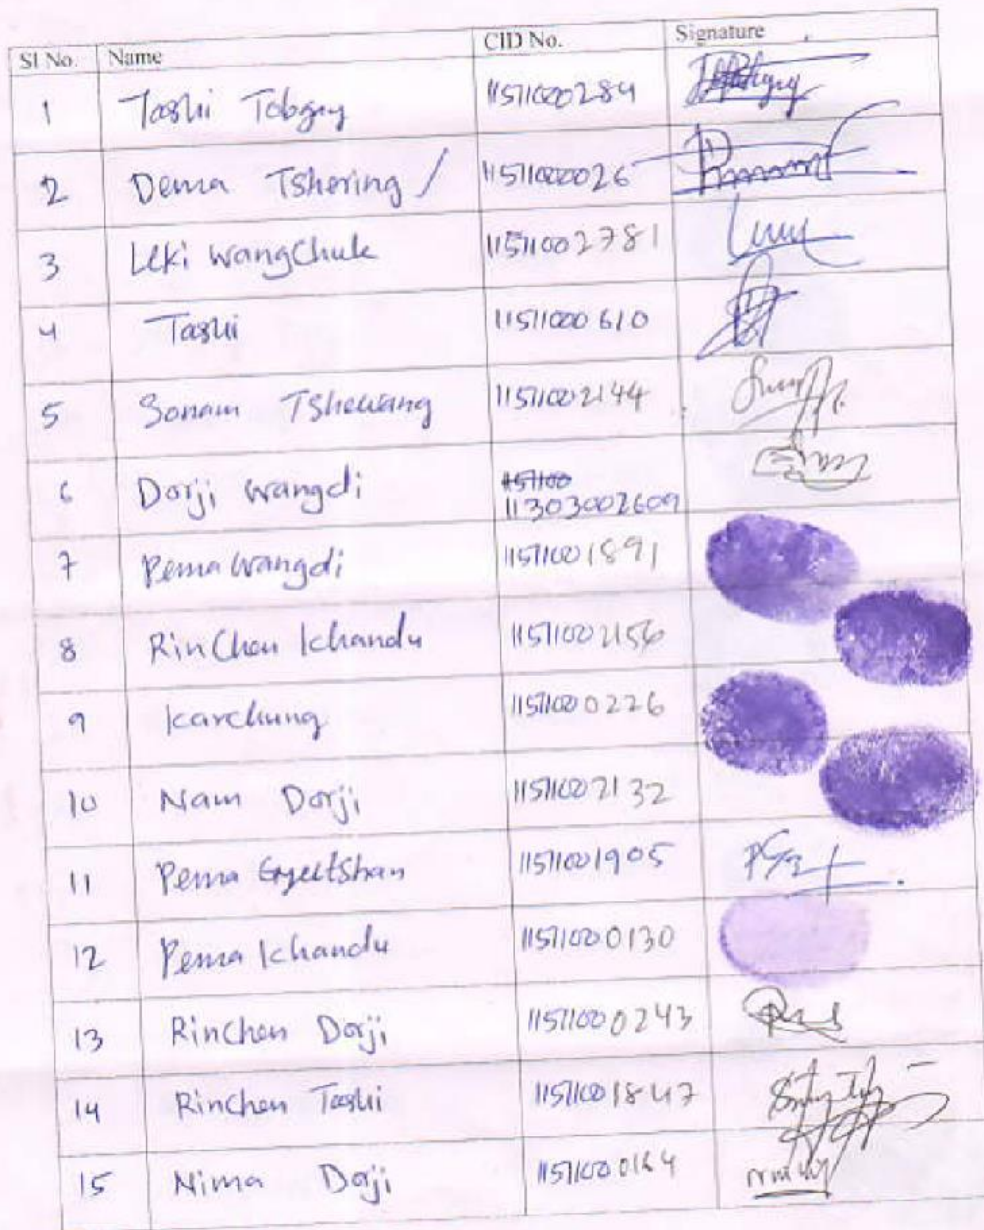 Sl No. Name CID No. Signature
1 Tashi Tobgay 11511000284
2 Dema Tshering / 11511000026
3 Leki Wangchuk 11511002781
4 Tashi 11511000610
5 Sonam Tshewang 11511002144
6 Dorji Wangdi 1151100
11303002609
7 Pema Wangdi 11511001891
8 RinChen Khandu 11511002156
9 Karchung 11511000226
10 Nam Dorji 11511002132
11 Pema Gyeltshan 11511001905
12 Pema Khandu 11511000130
13 RinChen Dorji 11511000243
14 RinChen Tashi 11511001847
15 Nima Dorji 11511000164